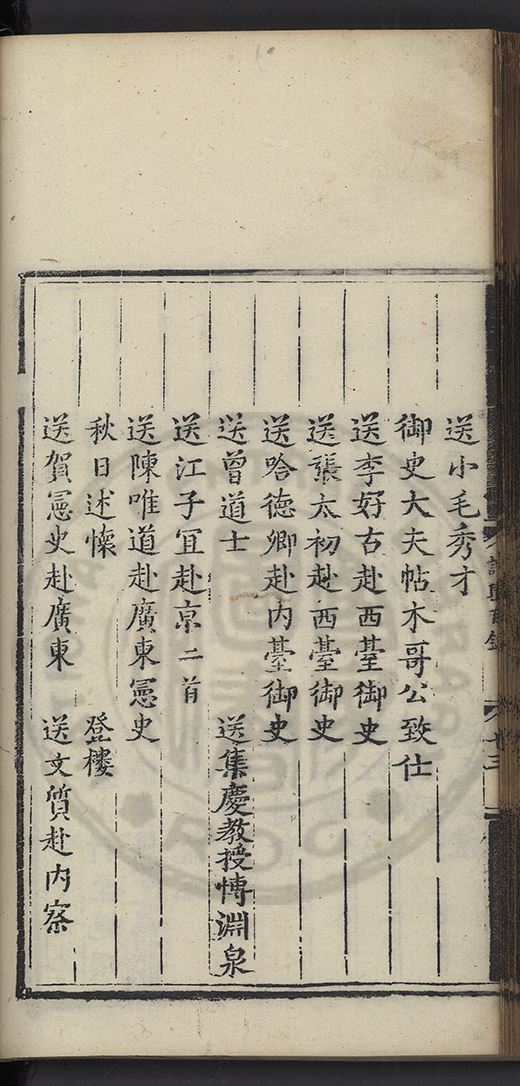 送小毛秀才
御史大夫帖木哥公致仕
送李好古赴西䑓御史
送張太初赴西䑓御史
送哈德卿赴内䑓御史
送曾道士　送集慶教授愽淵泉
送江子宜赴京二首
送陳唯道赴廣東憲史
秋日述懐　登樓
送賀憲史赴廣東　送文質赴内察